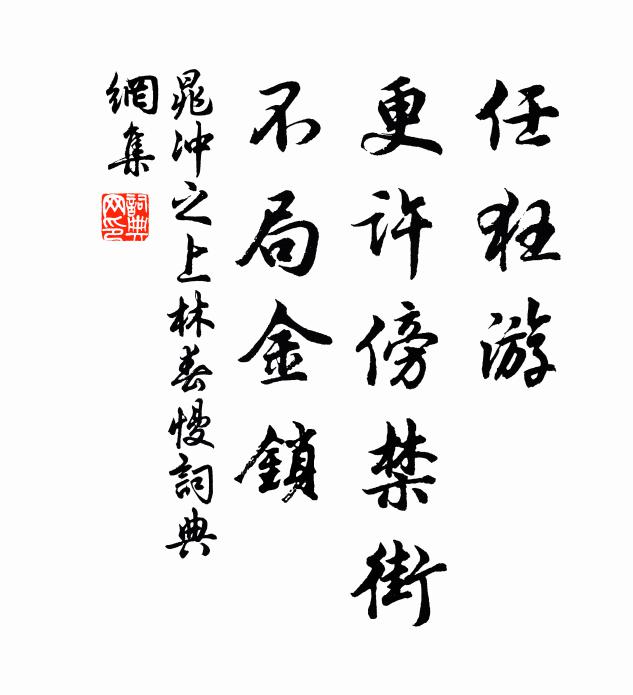 任狂游
更许傍禁街
不局金鎖
晁冲之上林春慢詞典
網集
詞典网印